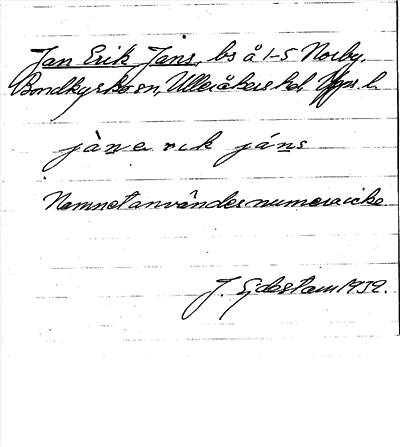 Jan Erik Jans, bs å 1-5 Norby,
Bondkyrko sn, Ulleråkers hd, Upps. l.
jànerik jáns
Namnet användes numera icke
J. Sjöestam 1939.